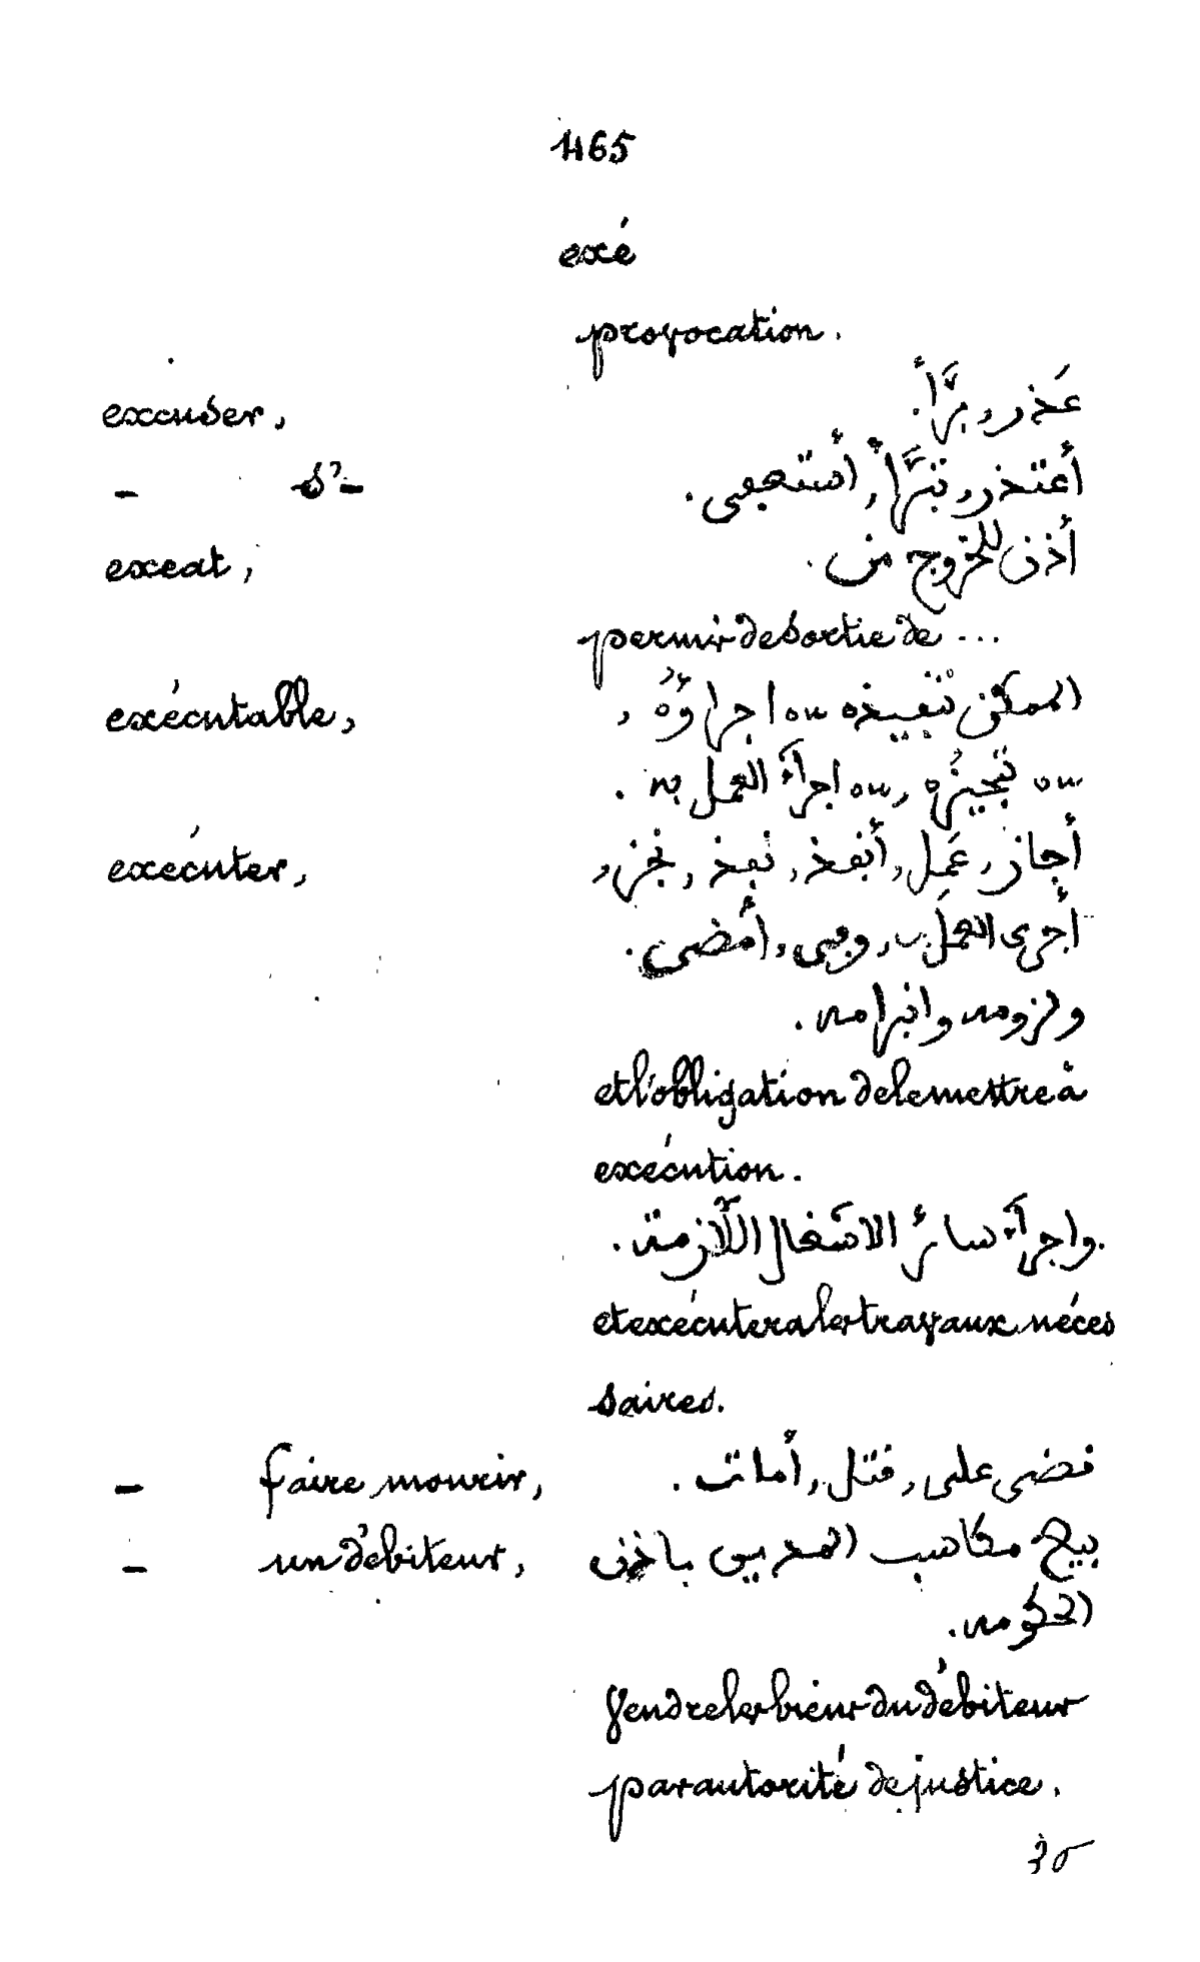 465
exé
provocation.
excuser, عَذر, برَّأَ.
— s'— أعتذر, تبرَّأَ, أستعفى.
exeat, أذن للخروج من.
permis de sortie de ...
exécutable, الممكن تنفيذه سه اجراؤُهُ,
سه تنجيزُه, سه اجرآء العمل به.
exécuter, أجاز, عَمِل, أنفذ, نفذ, نجز,
أجرى العمَل ب, وفى, أمضى.
ولزومه وابرامه.
et l'obligation de le mettre à
exécution.
واجرآء سائر الاشغال اللّازمة.
et exécutera les travaux néces
saires.
— faire mourir, قضى على, قتل, أمات.
— un débiteur, بيع مكاسب المدين باذن
الحكومه.
vendre les biens du débiteur
par autorité de justice.
30